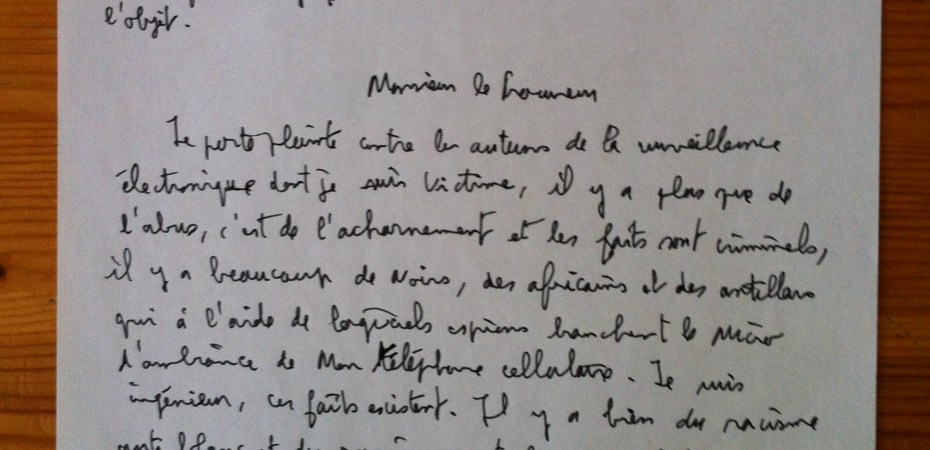 l'objet.
Monsieur le Procureur
Je porte plainte contre les auteurs de la surveillance
électronique dont je suis victime, il y a plus que de
l'abus, c'est de l'acharnement et les faits sont criminels,
il y a beaucoup de noirs, des africains et des antillais
qui à l'aide de logiciels espions branchent le micro
d'ambiance de mon téléphone cellulaire. Je suis
ingénieur, ces faits existent. Il y a bien du racisme